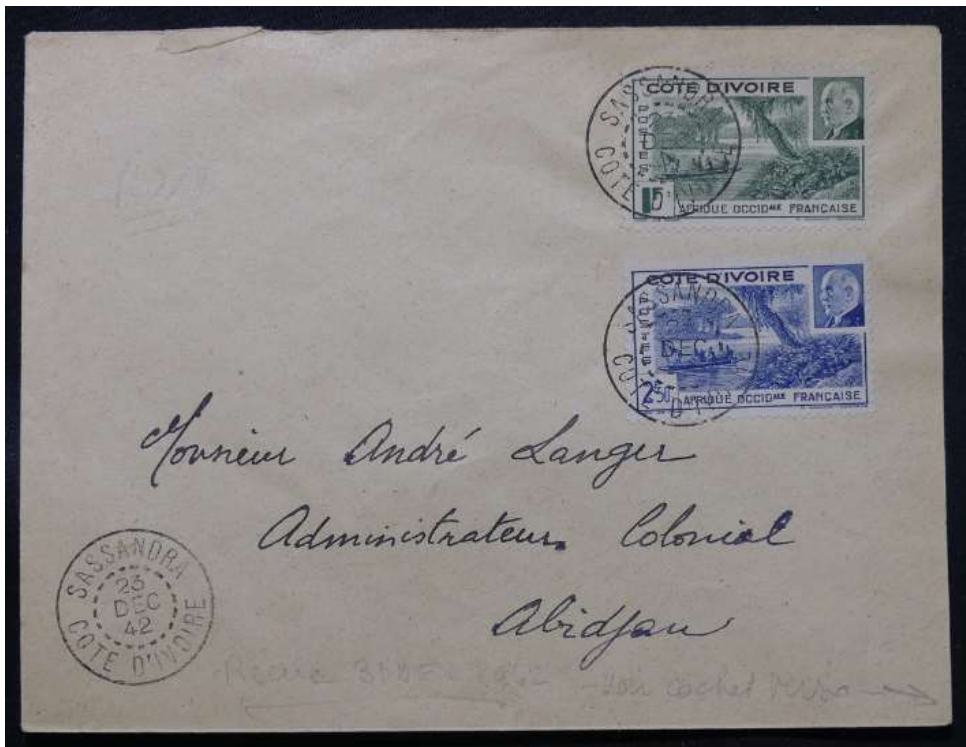 COTE D'IVOIRE
POSTES
AFRIQUE OCCIDALE FRANÇAISE
SASSANDRA
23
COTE D'IVOIRE
POSTES
2F50
AFRIQUE OCCIDALE FRANÇAISE
SASSANDRA
DEC
Monsieur André Langer
Administrateur Colonial
Abidjan
SASSANDRA
23
DEC
42
COTE D'IVOIRE
voir cachet verso